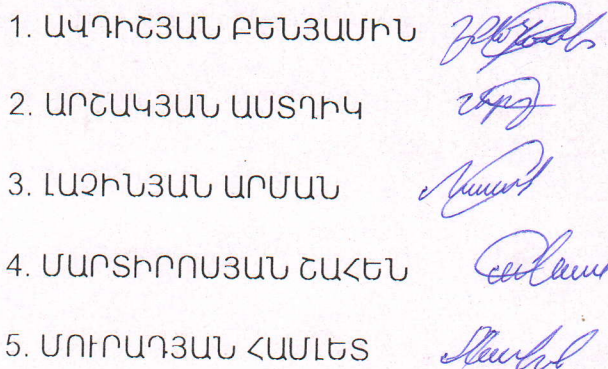 1. ԱՎԴԻՇՅԱՆ ԲԵՆՅԱՄԻՆ
2. ԱՐՇԱԿՅԱՆ ԱՍՏՂԻԿ
3. ԼԱՉԻՆՅԱՆ ԱՐՄԱՆ
4. ՄԱՐՏԻՐՈՍՅԱՆ ՇԱՀԵՆ
5. ՄՈՒՐԱԴՅԱՆ ՀԱՄԼԵՏ